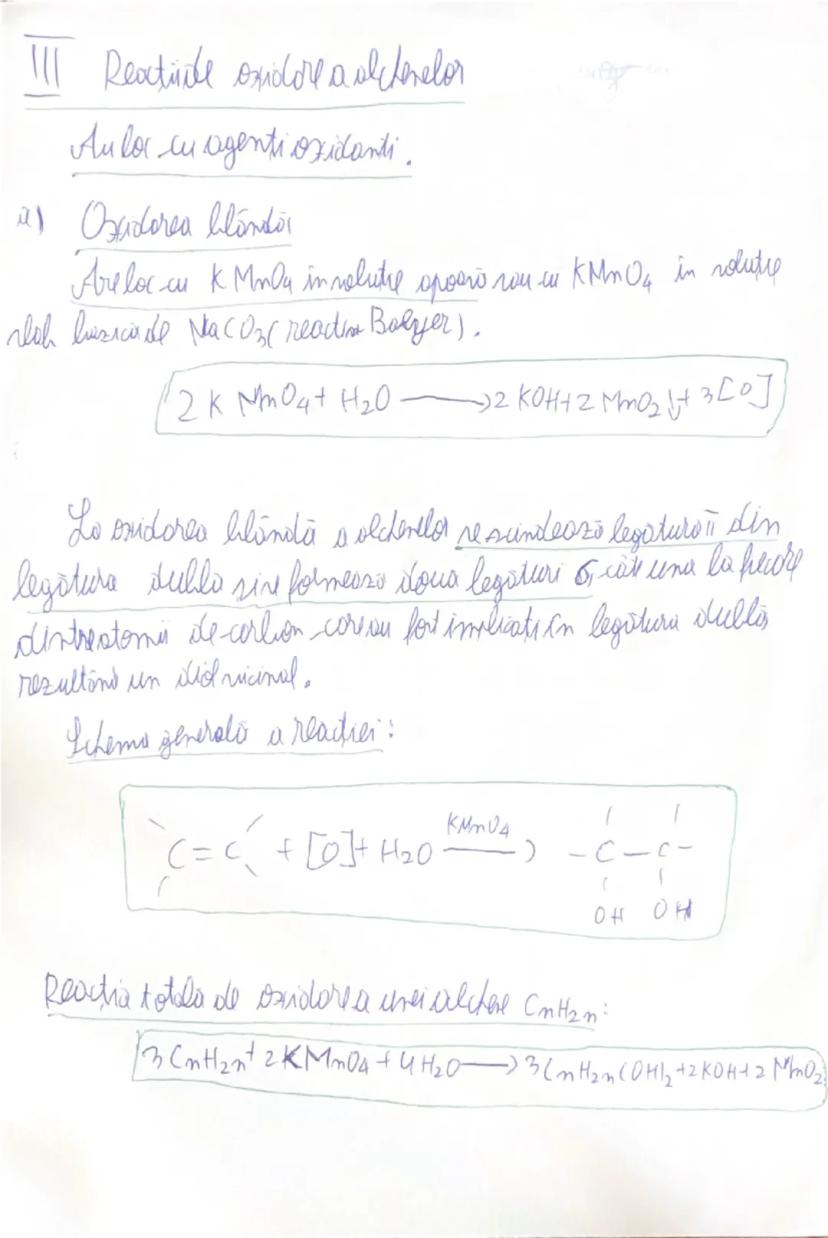 III Reacțiile oxidare a alchenelor
Au loc cu agenți oxidanti.
a) Oxidarea blândă
Are loc cu KMnO4 in soluție apoasă sau cu KMnO4 in soluție
slab bazica de NaCO3 (reactiv Baeyer).
2 K MnO4 + H2O ⟶ 2 KOH + 2 MnO2↓ + 3[O]
La oxidarea blândă a alchenelor se scindează legătura π din
legătura dubla si se formează doua legături σ, câte una la fiecare
dintre atomii de carbon care au fost implicați în legătura dublă
rezultând un diol vicinal.
Schema generală a reacției:
KMnO4
C=C + [O] + H2O ⟶ -C-C-
OH OH
Reacția totală de oxidare a unei alchene CnH2n:
3 CnH2n + 2KMnO4 + 4H2O ⟶ 3CnH2n(OH)2 + 2 KOH + 2 MnO2